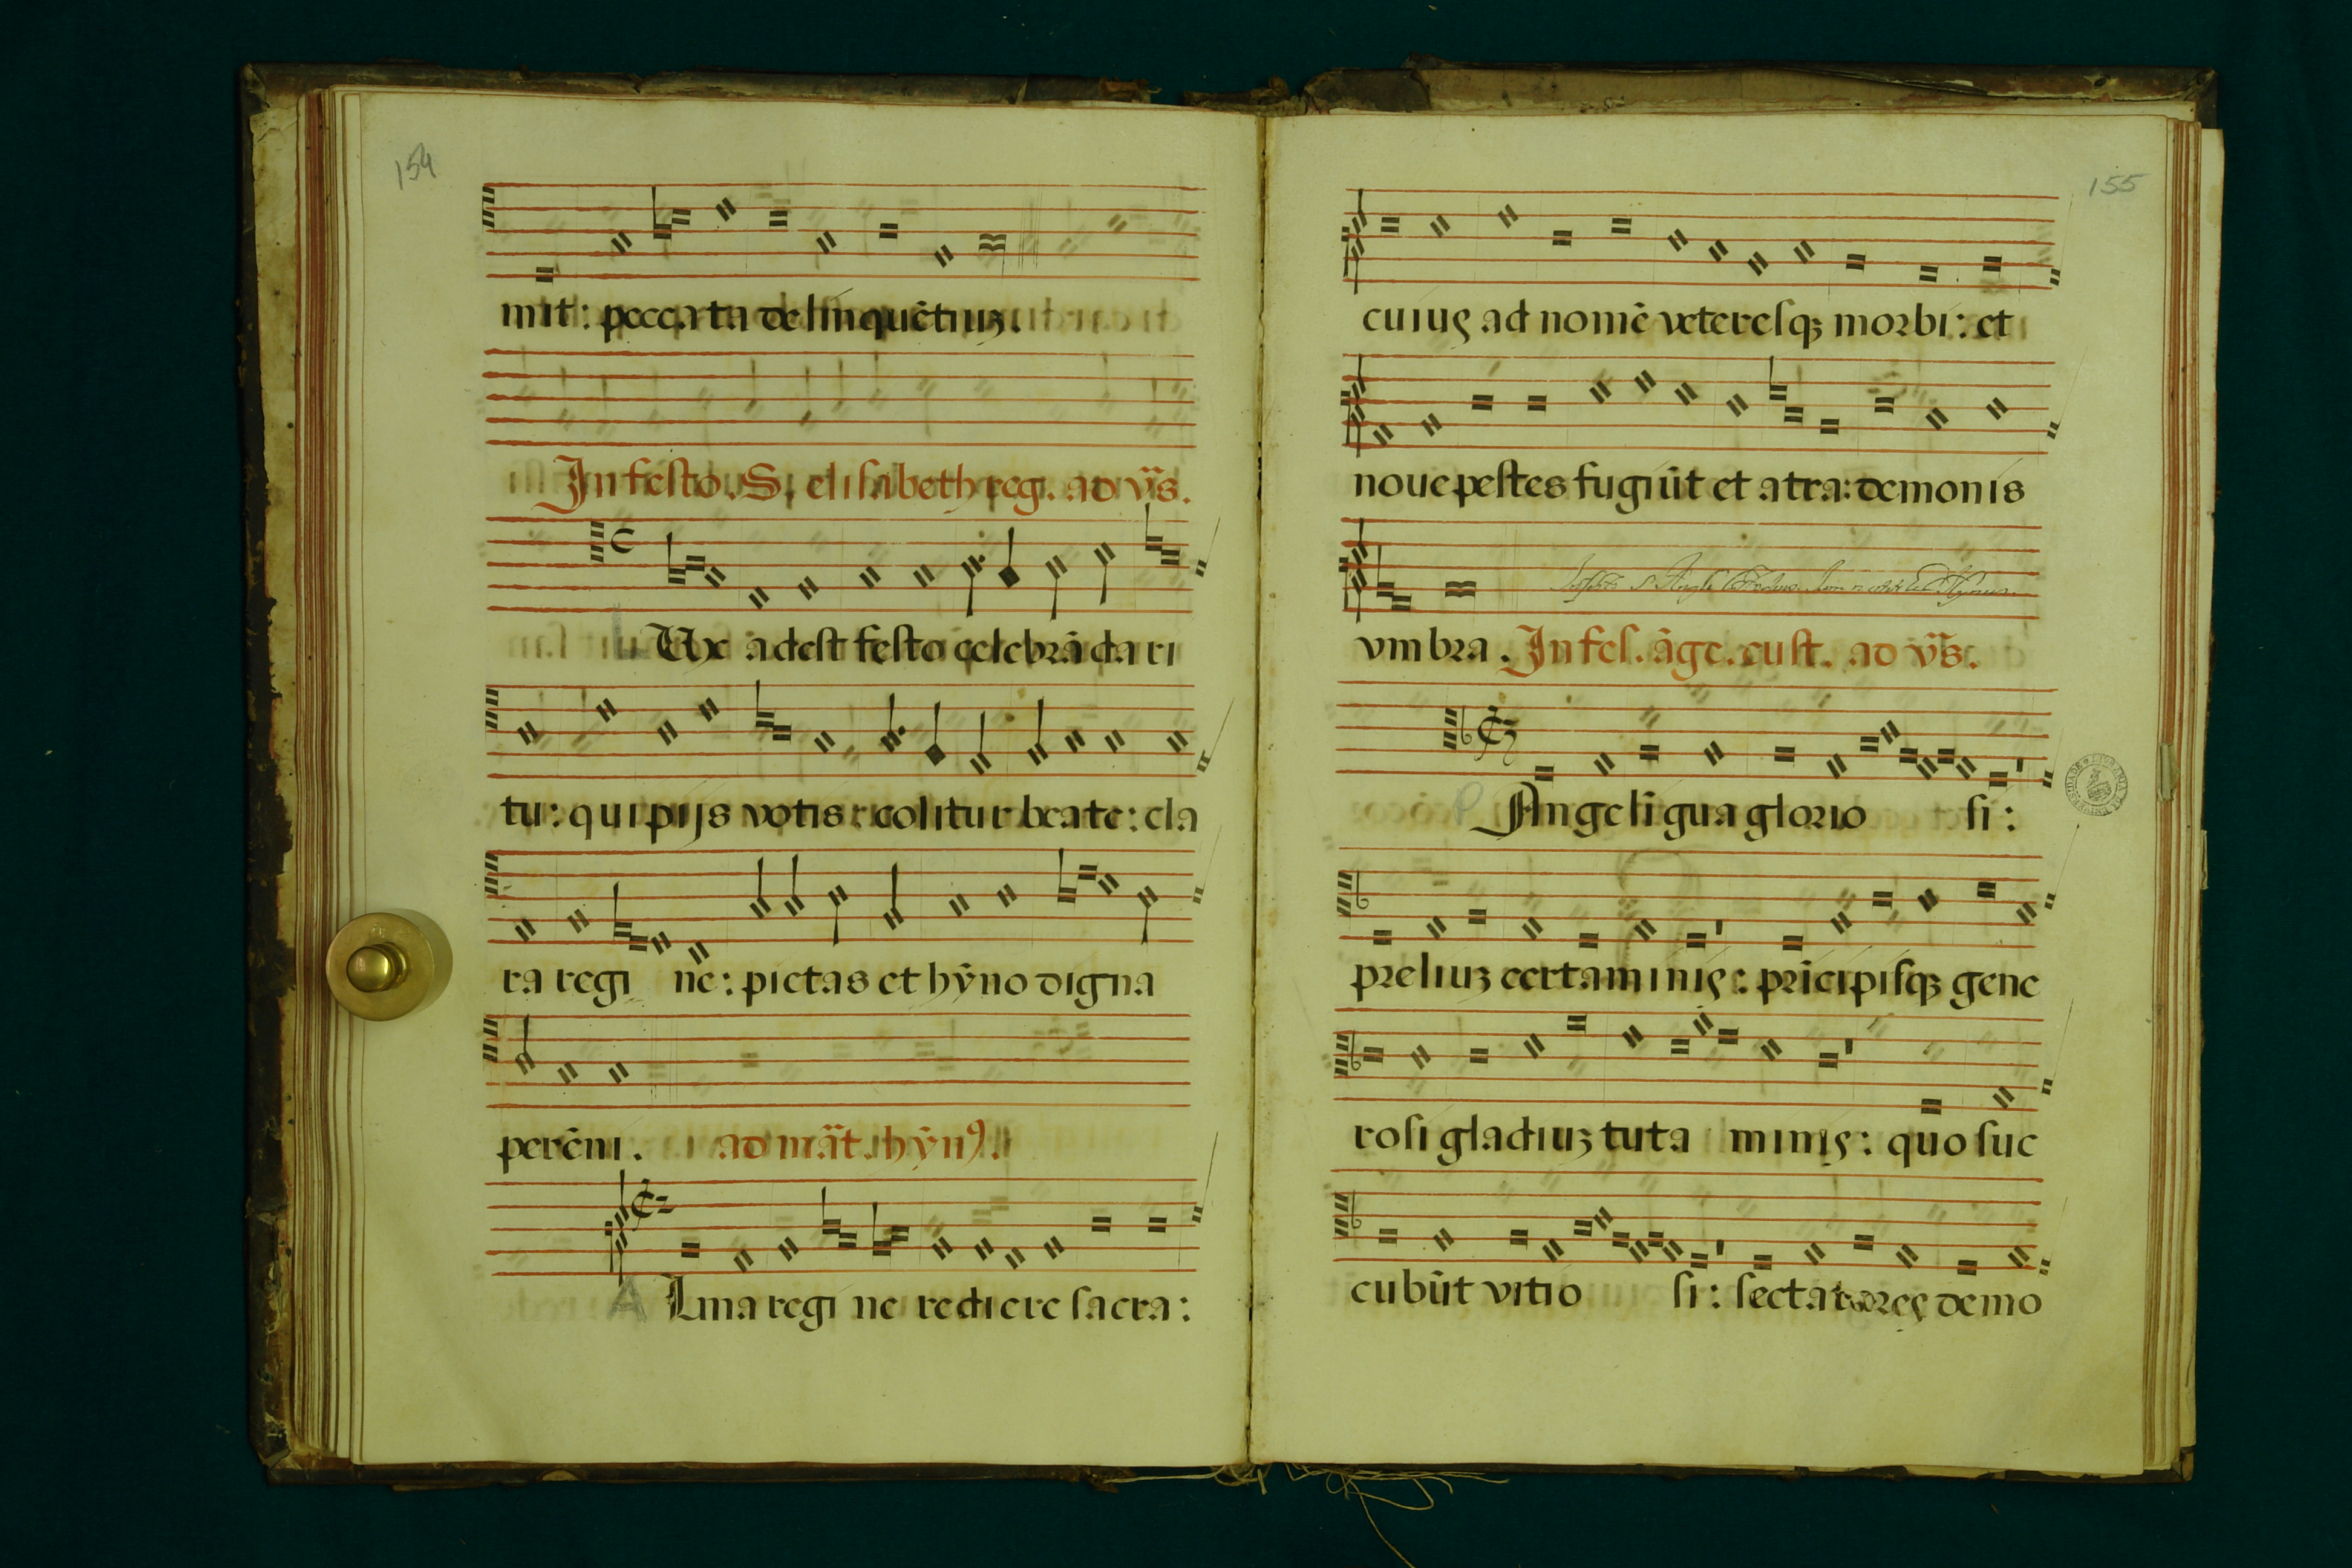 154
mit: peccata delinquẽtiuꝫ.
In festo. S. elisabeth reg. ad vs̃.
L Ux adest festo celebrãda ri
tu: qui pijs votis: colitur beate: cla
ra regi ne: pietas et hỹno digna
perẽni. ad mãt. hỹnꝰ.
A Lma regi ne rediere sacra:
155
cuiuς ad nomẽ veteresqꝫ morbi: et
noue pestes fugiũt et atra: demonis
vmbra. In fes. ãge. cust. ad vs̃.
P Ange lĩgua glorio si:
preliuꝫ certaminiς: prĩcipisqꝫ gene
rosi gladiuꝫ tuta miniς: quo suc
cubũt vitio si: sectatoreς demo